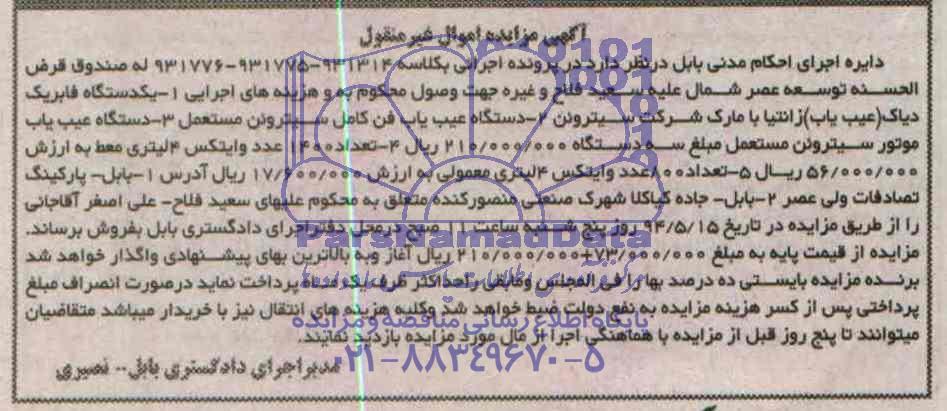 آگهی مزایده اموال غیر منقول
دایره اجرای احکام مدنی بابل درنظر دارد در پرونده اجرایی بکلاسه ۹۳۱۳۱۴-۹۳۱۷۷۵-۹۳۱۷۷۶ له صندوق قرض
الحسنه توسعه عصر شمال علیه سعید فلاح و غیره جهت وصول محکوم به و هزینه های اجرایی ۱-یکدستگاه فابریک
دیاک(عیب یاب)زانتیا با مارک شرکت سیتروئن ۲-دستگاه عیب یاب فن کامل سیتروئن مستعمل ۳-دستگاه عیب یاب
موتور سیتروئن مستعمل مبلغ سه دستگاه ۲۱۰/۰۰۰/۰۰۰ ریال ۴-تعداد۱۴۰۰ عدد وایتکس ۴لیتری معط به ارزش
۵۶/۰۰۰/۰۰۰ ریال ۵-تعداد۸۰۰عدد وایتکس ۴لیتری معمولی به ارزش ۱۷/۶۰۰/۰۰۰ ریال آدرس ۱-بابل- پارکینگ
تصادفات ولی عصر ۲-بابل- جاده کیاکلا شهرک صنعتی منصورکنده متعلق به محکوم علیهای سعید فلاح- علی اصغر آقاجانی
را از طریق مزایده در تاریخ ۹۴/۵/۱۵ روز پنج شنبه ساعت ۱۱ صبح درمحل دفتراجرای دادگستری بابل بفروش برساند.
مزایده از قیمت پایه به مبلغ ۷۳/۰۰۰/۰۰۰+۲۱۰/۰۰۰/۰۰۰ ریال آغاز وبه بالاترین بهای پیشنهادی واگذار خواهد شد
برنده مزایده بایستی ده درصد بها را فی المجلس ومابقی راحداکثر ظرف یک ماه پرداخت نماید درصورت انصراف مبلغ
پرداختی پس از کسر هزینه مزایده به نفع دولت ضبط خواهد شد وکلیه هزینه های انتقال نیز با خریدار میباشد متقاضیان
میتوانند تا پنج روز قبل از مزایده با هماهنگی اجرا از مال مورد مزایده بازدید نمایند.
مدیراجرای دادگستری بابل-- نصیری
ParsNamadData
پایگاه اطلاع رسانی مناقصه و مزایده
۰۲۱-۸۸۳۴۹۶۷۰-۵